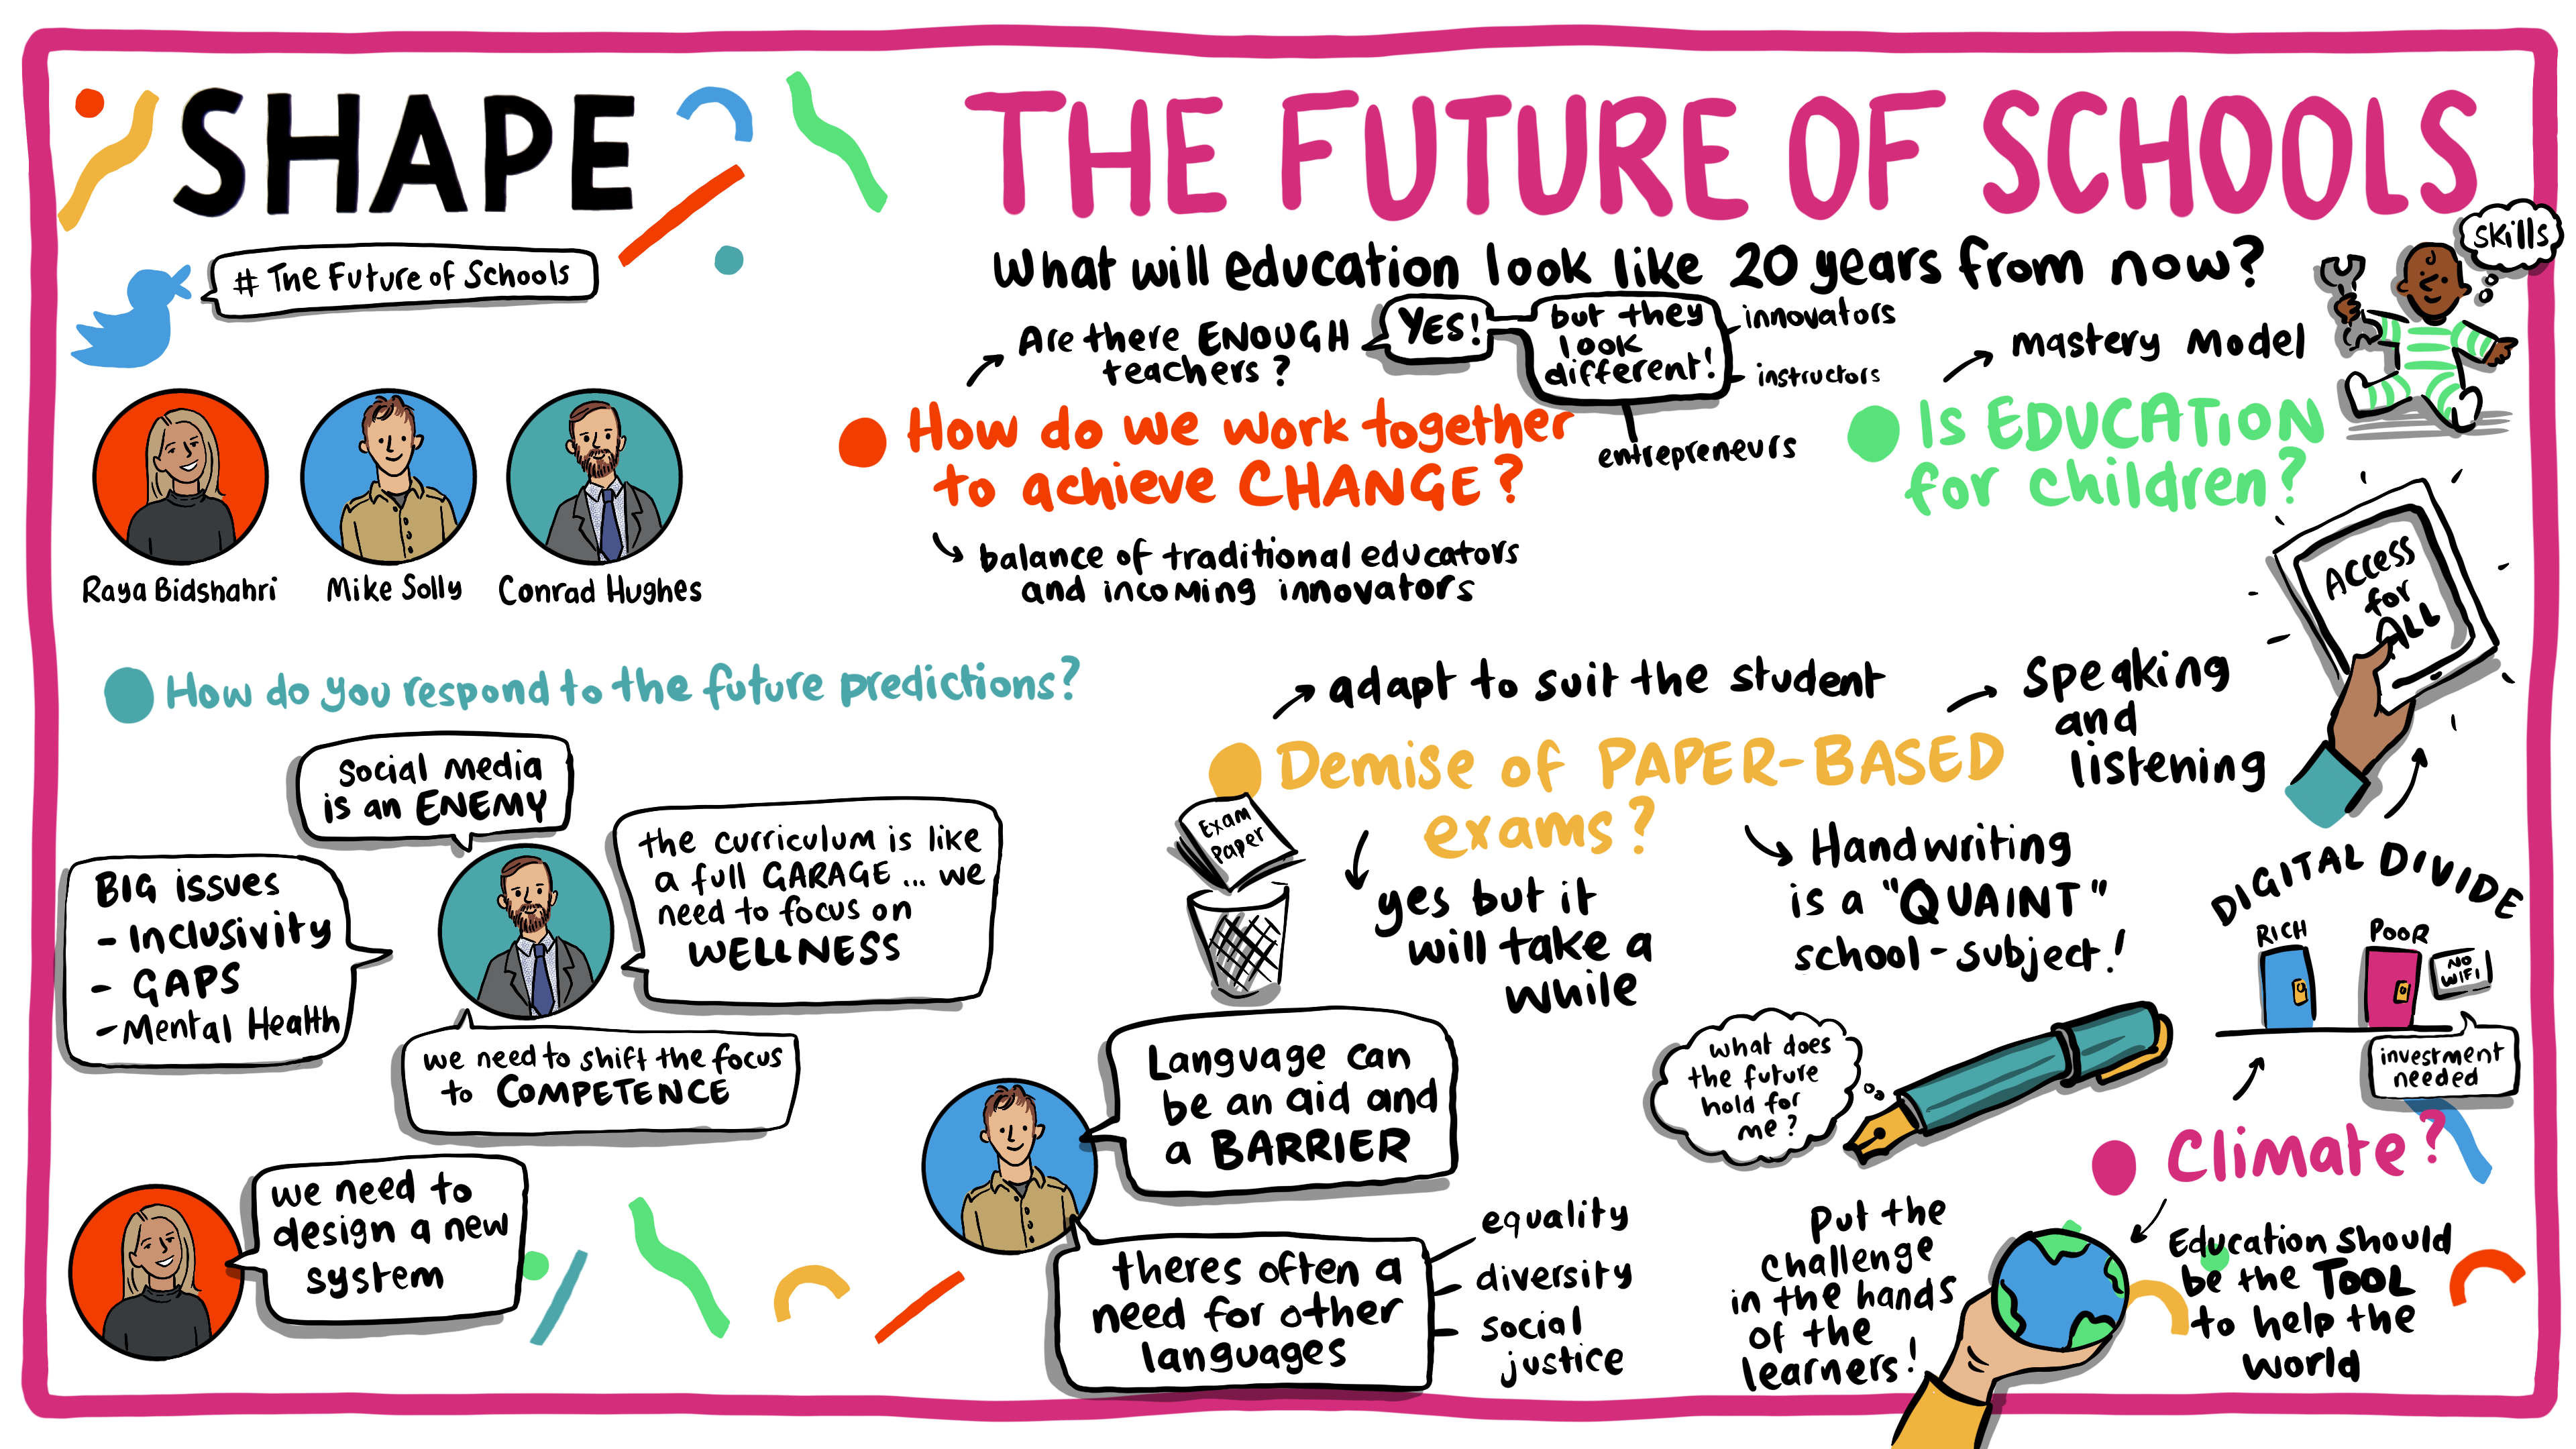 SHAPE
# The Future of Schools
Raya Bidshahri
Mike Solly
Conrad Hughes
THE FUTURE OF SCHOOLS
What will education look like 20 years from now?
Are there ENOUGH
teachers?
YES!
but they
look
different!
innovators
instructors
entrepreneurs
How do we work together
to achieve CHANGE?
balance of traditional educators
and incoming innovators
skills
mastery model
Is EDUCATION
for children?
Access
for
ALL
How do you respond to the future predictions?
Social media
is an ENEMY
BIG issues
- Inclusivity
- GAPS
- Mental Health
the curriculum is like
a full GARAGE ... we
need to focus on
WELLNESS
we need to shift the focus
to COMPETENCE
we need to
design a new
system
adapt to suit the student
Speaking
and
listening
Demise of PAPER-BASED
exams?
Exam
Paper
yes but it
will take a
while
Handwriting
is a "QUAINT"
school-subject!
DIGITAL DIVIDE
RICH
POOR
NO
WIFI
investment
needed
what does
the future
hold for
me?
Language can
be an aid and
a BARRIER
theres often a
need for other
languages
equality
diversity
social
justice
Climate?
Put the
challenge
in the hands
of the
learners!
Education should
be the TOOL
to help the
world